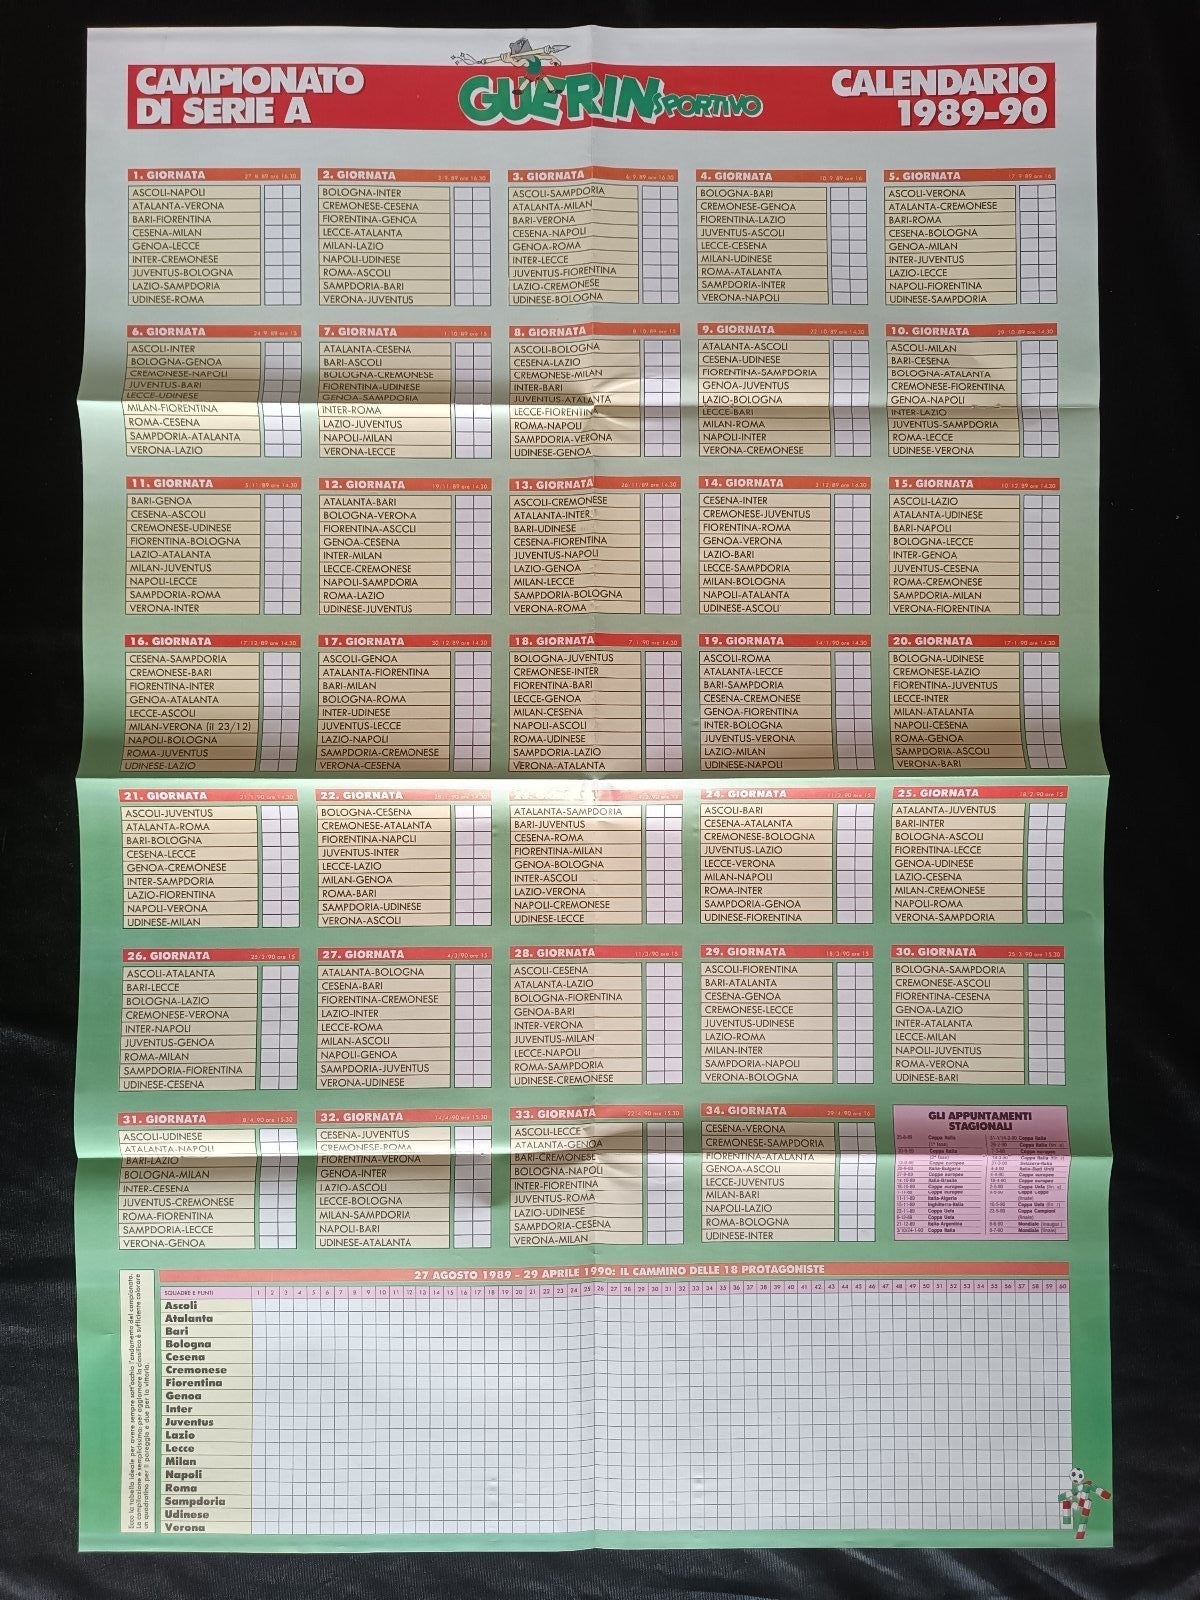 CAMPIONATO
DI SERIE A
GUERIN SPORTIVO
CALENDARIO
1989-90
1. GIORNATA 27/8/89 ore 16.30
ASCOLI-NAPOLI
ATALANTA-VERONA
BARI-FIORENTINA
CESENA-MILAN
GENOA-LECCE
INTER-CREMONESE
JUVENTUS-BOLOGNA
LAZIO-SAMPDORIA
UDINESE-ROMA
2. GIORNATA 3/9/89 ore 16.30
BOLOGNA-INTER
CREMONESE-CESENA
FIORENTINA-GENOA
LECCE-ATALANTA
MILAN-LAZIO
NAPOLI-UDINESE
ROMA-ASCOLI
SAMPDORIA-BARI
VERONA-JUVENTUS
3. GIORNATA 6/9/89 ore 16.30
ASCOLI-SAMPDORIA
ATALANTA-MILAN
BARI-VERONA
CESENA-NAPOLI
GENOA-ROMA
INTER-LECCE
JUVENTUS-FIORENTINA
LAZIO-CREMONESE
UDINESE-BOLOGNA
4. GIORNATA 10/9/89 ore 16
BOLOGNA-BARI
CREMONESE-GENOA
FIORENTINA-LAZIO
JUVENTUS-ASCOLI
LECCE-CESENA
MILAN-UDINESE
ROMA-ATALANTA
SAMPDORIA-INTER
VERONA-NAPOLI
5. GIORNATA 17/9/89 ore 16
ASCOLI-VERONA
ATALANTA-CREMONESE
BARI-ROMA
CESENA-BOLOGNA
GENOA-MILAN
INTER-JUVENTUS
LAZIO-LECCE
NAPOLI-FIORENTINA
UDINESE-SAMPDORIA
6. GIORNATA 24/9/89 ore 15
ASCOLI-INTER
BOLOGNA-GENOA
CREMONESE-NAPOLI
JUVENTUS-BARI
LECCE-UDINESE
MILAN-FIORENTINA
ROMA-CESENA
SAMPDORIA-ATALANTA
VERONA-LAZIO
7. GIORNATA 1/10/89 ore 15
ATALANTA-CESENA
BARI-ASCOLI
BOLOGNA-CREMONESE
FIORENTINA-UDINESE
GENOA-SAMPDORIA
INTER-ROMA
LAZIO-JUVENTUS
NAPOLI-MILAN
VERONA-LECCE
8. GIORNATA 8/10/89 ore 15
ASCOLI-BOLOGNA
CESENA-LAZIO
CREMONESE-MILAN
INTER-BARI
JUVENTUS-ATALANTA
LECCE-FIORENTINA
ROMA-NAPOLI
SAMPDORIA-VERONA
UDINESE-GENOA
9. GIORNATA 22/10/89 ore 14.30
ATALANTA-ASCOLI
CESENA-UDINESE
FIORENTINA-SAMPDORIA
GENOA-JUVENTUS
LAZIO-BOLOGNA
LECCE-BARI
MILAN-ROMA
NAPOLI-INTER
VERONA-CREMONESE
10. GIORNATA 29/10/89 ore 14.30
ASCOLI-MILAN
BARI-CESENA
BOLOGNA-ATALANTA
CREMONESE-FIORENTINA
GENOA-NAPOLI
INTER-LAZIO
JUVENTUS-SAMPDORIA
ROMA-LECCE
UDINESE-VERONA
11. GIORNATA 5/11/89 ore 14.30
BARI-GENOA
CESENA-ASCOLI
CREMONESE-UDINESE
FIORENTINA-BOLOGNA
LAZIO-ATALANTA
MILAN-JUVENTUS
NAPOLI-LECCE
SAMPDORIA-ROMA
VERONA-INTER
12. GIORNATA 19/11/89 ore 14.30
ATALANTA-BARI
BOLOGNA-VERONA
FIORENTINA-ASCOLI
GENOA-CESENA
INTER-MILAN
LECCE-CREMONESE
NAPOLI-SAMPDORIA
ROMA-LAZIO
UDINESE-JUVENTUS
13. GIORNATA 26/11/89 ore 14.30
ASCOLI-CREMONESE
ATALANTA-INTER
BARI-UDINESE
CESENA-FIORENTINA
JUVENTUS-NAPOLI
LAZIO-GENOA
MILAN-LECCE
SAMPDORIA-BOLOGNA
VERONA-ROMA
14. GIORNATA 3/12/89 ore 14.30
CESENA-INTER
CREMONESE-JUVENTUS
FIORENTINA-ROMA
GENOA-VERONA
LAZIO-BARI
LECCE-SAMPDORIA
MILAN-BOLOGNA
NAPOLI-ATALANTA
UDINESE-ASCOLI
15. GIORNATA 10/12/89 ore 14.30
ASCOLI-LAZIO
ATALANTA-UDINESE
BARI-NAPOLI
BOLOGNA-LECCE
INTER-GENOA
JUVENTUS-CESENA
ROMA-CREMONESE
SAMPDORIA-MILAN
VERONA-FIORENTINA
16. GIORNATA 17/12/89 ore 14.30
CESENA-SAMPDORIA
CREMONESE-BARI
FIORENTINA-INTER
GENOA-ATALANTA
LECCE-ASCOLI
MILAN-VERONA (il 23/12)
NAPOLI-BOLOGNA
ROMA-JUVENTUS
UDINESE-LAZIO
17. GIORNATA 30/12/89 ore 14.30
ASCOLI-GENOA
ATALANTA-FIORENTINA
BARI-MILAN
BOLOGNA-ROMA
INTER-UDINESE
JUVENTUS-LECCE
LAZIO-NAPOLI
SAMPDORIA-CREMONESE
VERONA-CESENA
18. GIORNATA 7/1/90 ore 14.30
BOLOGNA-JUVENTUS
CREMONESE-INTER
FIORENTINA-BARI
LECCE-GENOA
MILAN-CESENA
NAPOLI-ASCOLI
ROMA-UDINESE
SAMPDORIA-LAZIO
VERONA-ATALANTA
19. GIORNATA 14/1/90 ore 14.30
ASCOLI-ROMA
ATALANTA-LECCE
BARI-SAMPDORIA
CESENA-CREMONESE
GENOA-FIORENTINA
INTER-BOLOGNA
JUVENTUS-VERONA
LAZIO-MILAN
UDINESE-NAPOLI
20. GIORNATA 17/1/90 ore 14.30
BOLOGNA-UDINESE
CREMONESE-LAZIO
FIORENTINA-JUVENTUS
LECCE-INTER
MILAN-ATALANTA
NAPOLI-CESENA
ROMA-GENOA
SAMPDORIA-ASCOLI
VERONA-BARI
21. GIORNATA 21/1/90 ore 14.30
ASCOLI-JUVENTUS
ATALANTA-ROMA
BARI-BOLOGNA
CESENA-LECCE
GENOA-CREMONESE
INTER-SAMPDORIA
LAZIO-FIORENTINA
NAPOLI-VERONA
UDINESE-MILAN
22. GIORNATA
BOLOGNA-CESENA
CREMONESE-ATALANTA
FIORENTINA-NAPOLI
JUVENTUS-INTER
LECCE-LAZIO
MILAN-GENOA
ROMA-BARI
SAMPDORIA-UDINESE
VERONA-ASCOLI
ATALANTA-SAMPDORIA
BARI-JUVENTUS
CESENA-ROMA
FIORENTINA-MILAN
GENOA-BOLOGNA
INTER-ASCOLI
LAZIO-VERONA
NAPOLI-CREMONESE
UDINESE-LECCE
24. GIORNATA 11/2/90 ore 15
ASCOLI-BARI
CESENA-ATALANTA
CREMONESE-BOLOGNA
JUVENTUS-LAZIO
LECCE-VERONA
MILAN-NAPOLI
ROMA-INTER
SAMPDORIA-GENOA
UDINESE-FIORENTINA
25. GIORNATA 18/2/90 ore 15
ATALANTA-JUVENTUS
BARI-INTER
BOLOGNA-ASCOLI
FIORENTINA-LECCE
GENOA-UDINESE
LAZIO-CESENA
MILAN-CREMONESE
NAPOLI-ROMA
VERONA-SAMPDORIA
26. GIORNATA 25/2/90 ore 15
ASCOLI-ATALANTA
BARI-LECCE
BOLOGNA-LAZIO
CREMONESE-VERONA
INTER-NAPOLI
JUVENTUS-GENOA
ROMA-MILAN
SAMPDORIA-FIORENTINA
UDINESE-CESENA
27. GIORNATA 4/3/90 ore 15
ATALANTA-BOLOGNA
CESENA-BARI
FIORENTINA-CREMONESE
LAZIO-INTER
LECCE-ROMA
MILAN-ASCOLI
NAPOLI-GENOA
SAMPDORIA-JUVENTUS
VERONA-UDINESE
28. GIORNATA 11/3/90 ore 15
ASCOLI-CESENA
ATALANTA-LAZIO
BOLOGNA-FIORENTINA
GENOA-BARI
INTER-VERONA
JUVENTUS-MILAN
LECCE-NAPOLI
ROMA-SAMPDORIA
UDINESE-CREMONESE
29. GIORNATA 18/3/90 ore 15
ASCOLI-FIORENTINA
BARI-ATALANTA
CESENA-GENOA
CREMONESE-LECCE
JUVENTUS-UDINESE
LAZIO-ROMA
MILAN-INTER
SAMPDORIA-NAPOLI
VERONA-BOLOGNA
30. GIORNATA 25/3/90 ore 15.30
BOLOGNA-SAMPDORIA
CREMONESE-ASCOLI
FIORENTINA-CESENA
GENOA-LAZIO
INTER-ATALANTA
LECCE-MILAN
NAPOLI-JUVENTUS
ROMA-VERONA
UDINESE-BARI
31. GIORNATA 8/4/90 ore 15.30
ASCOLI-UDINESE
ATALANTA-NAPOLI
BARI-LAZIO
BOLOGNA-MILAN
INTER-CESENA
JUVENTUS-CREMONESE
ROMA-FIORENTINA
SAMPDORIA-LECCE
VERONA-GENOA
32. GIORNATA 14/4/90 ore 15.30
CESENA-JUVENTUS
CREMONESE-ROMA
FIORENTINA-VERONA
GENOA-INTER
LAZIO-ASCOLI
LECCE-BOLOGNA
MILAN-SAMPDORIA
NAPOLI-BARI
UDINESE-ATALANTA
33. GIORNATA 22/4/90 ore 16
ASCOLI-LECCE
ATALANTA-GENOA
BARI-CREMONESE
BOLOGNA-NAPOLI
INTER-FIORENTINA
JUVENTUS-ROMA
LAZIO-UDINESE
SAMPDORIA-CESENA
VERONA-MILAN
34. GIORNATA 29/4/90 ore 16
CESENA-VERONA
CREMONESE-SAMPDORIA
FIORENTINA-ATALANTA
GENOA-ASCOLI
LECCE-JUVENTUS
MILAN-BARI
NAPOLI-LAZIO
ROMA-BOLOGNA
UDINESE-INTER
GLI APPUNTAMENTI
STAGIONALI
Ecco la tabella ideale per avere sempre sott'occhio l'andamento del campionato.
La compilazione è semplicissima: per aggiornare la classifica è sufficiente colorare
un quadratino per il pareggio e due per la vittoria.
27 AGOSTO 1989 - 29 APRILE 1990: IL CAMMINO DELLE 18 PROTAGONISTE
SQUADRE E PUNTI 1 2 3 4 5 6 7 8 9 10 11 12 13 14 15 16 17 18 19 20 21 22 23 24 25 26 27 28 29 30 31 32 33 34 35 36 37 38 39 40 41 42 43 44 45 46 47 48 49 50 51 52 53 54 55 56 57 58 59 60
Ascoli
Atalanta
Bari
Bologna
Cesena
Cremonese
Fiorentina
Genoa
Inter
Juventus
Lazio
Lecce
Milan
Napoli
Roma
Sampdoria
Udinese
Verona